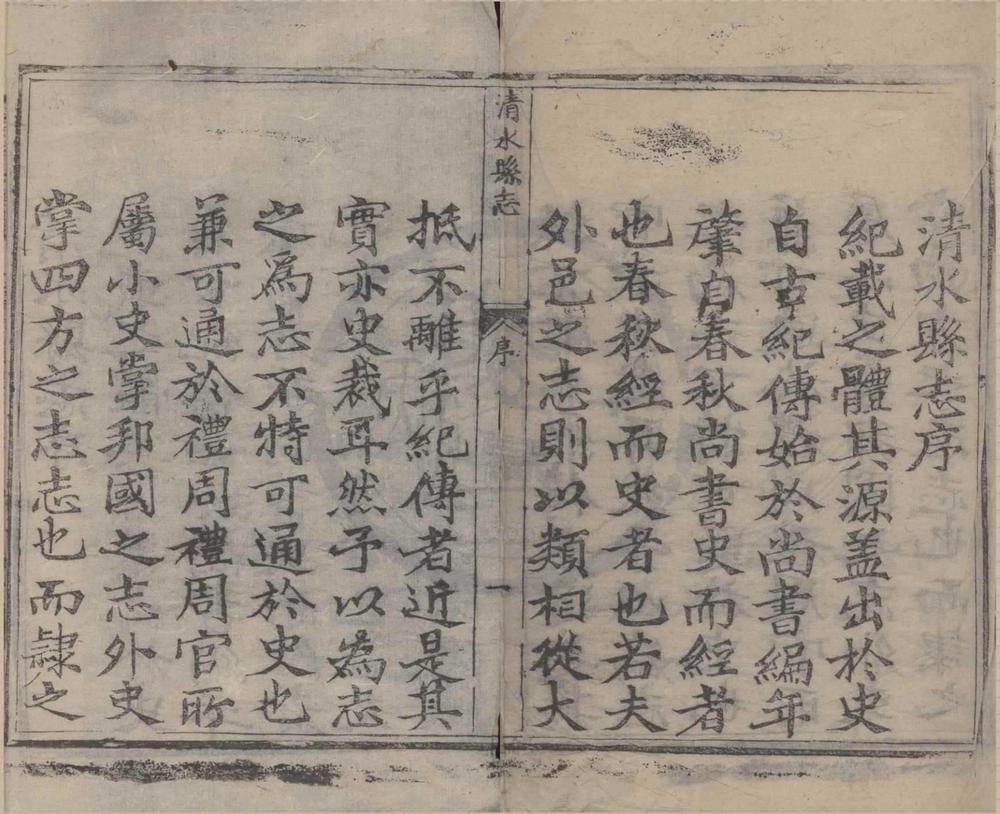 清水縣志序
紀載之體其源盖出於史
自古紀傳始於尚書編年
肇自春秋尚書史而經者
也春秋經而史者也若夫
外邑之志則以類相從大
清水縣志
序
一
抵不離乎紀傳者近是其
實亦史裁耳然予以為志
之爲志不特可通於史也
兼可通於禮周禮周官所
屬小史掌邦國之志外史
掌四方之志志也而隷之